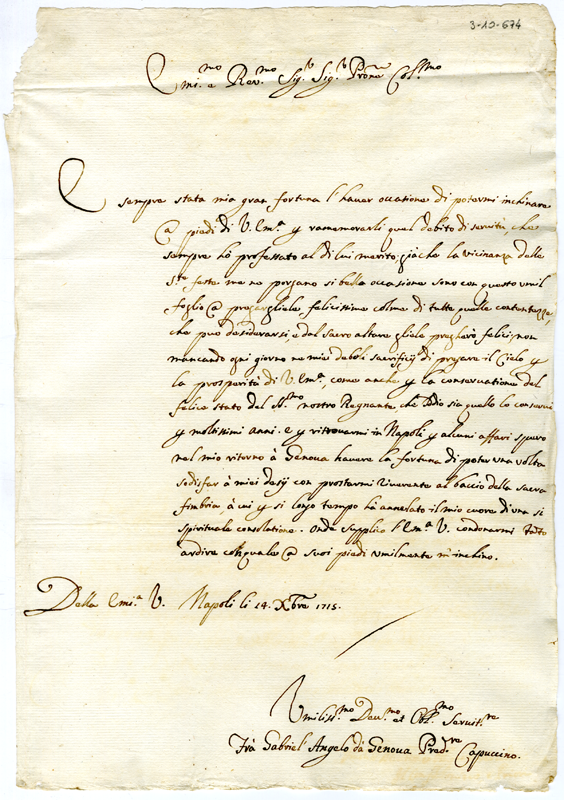 3-10-674
Em.mo e Rev.mo Sig.r Sig.r Prone Coll.mo
E sempre stata mia gran fortuna l'haver occasione di potermi inchinare
@ piedi di V. Em.a y ramemorarli quel debito di servitù, che
sempre hò professato al di lui merito, giache la vicinanza delle
S.te feste me ne porgano si bella occasione sono con questo umil
foglio @ pregargliele felicissime colme di tutte quelle contentezze,
che può desiderarsi, e dal sacro altare gliele pregherò felici, non
mancando ogni giorno ne miei deboli sacrificij di pregare il Cielo y
la prosperità di V. Em.a, come anche y la conservatione del
felice stato del nostro Regnante, che Iddio sia quello lo conservi
y moltissimi anni. e y ritrovarmi in Napoli y alcuni affari spero
nel mio ritorno à Genova havere la fortuna di poter una volta
sodisfar à miei desij con prostarmi riverente al baccio della sacra
fimbria à cui y si longo tempo hà annelato il mio cuore di una si
spirituale consolatione. Onde supplico l'Em.a V. condonarmi tanto
ardire col quale @ suoi piedi umilmente m'inchino.
Della Emi.a V. Napoli li 14. Xbre 1715.
Umiliss.mo Dev.mo et Obl.mo Servit.re
Frà Gabriel Angelo dà Genova Pred.re Capuccino.